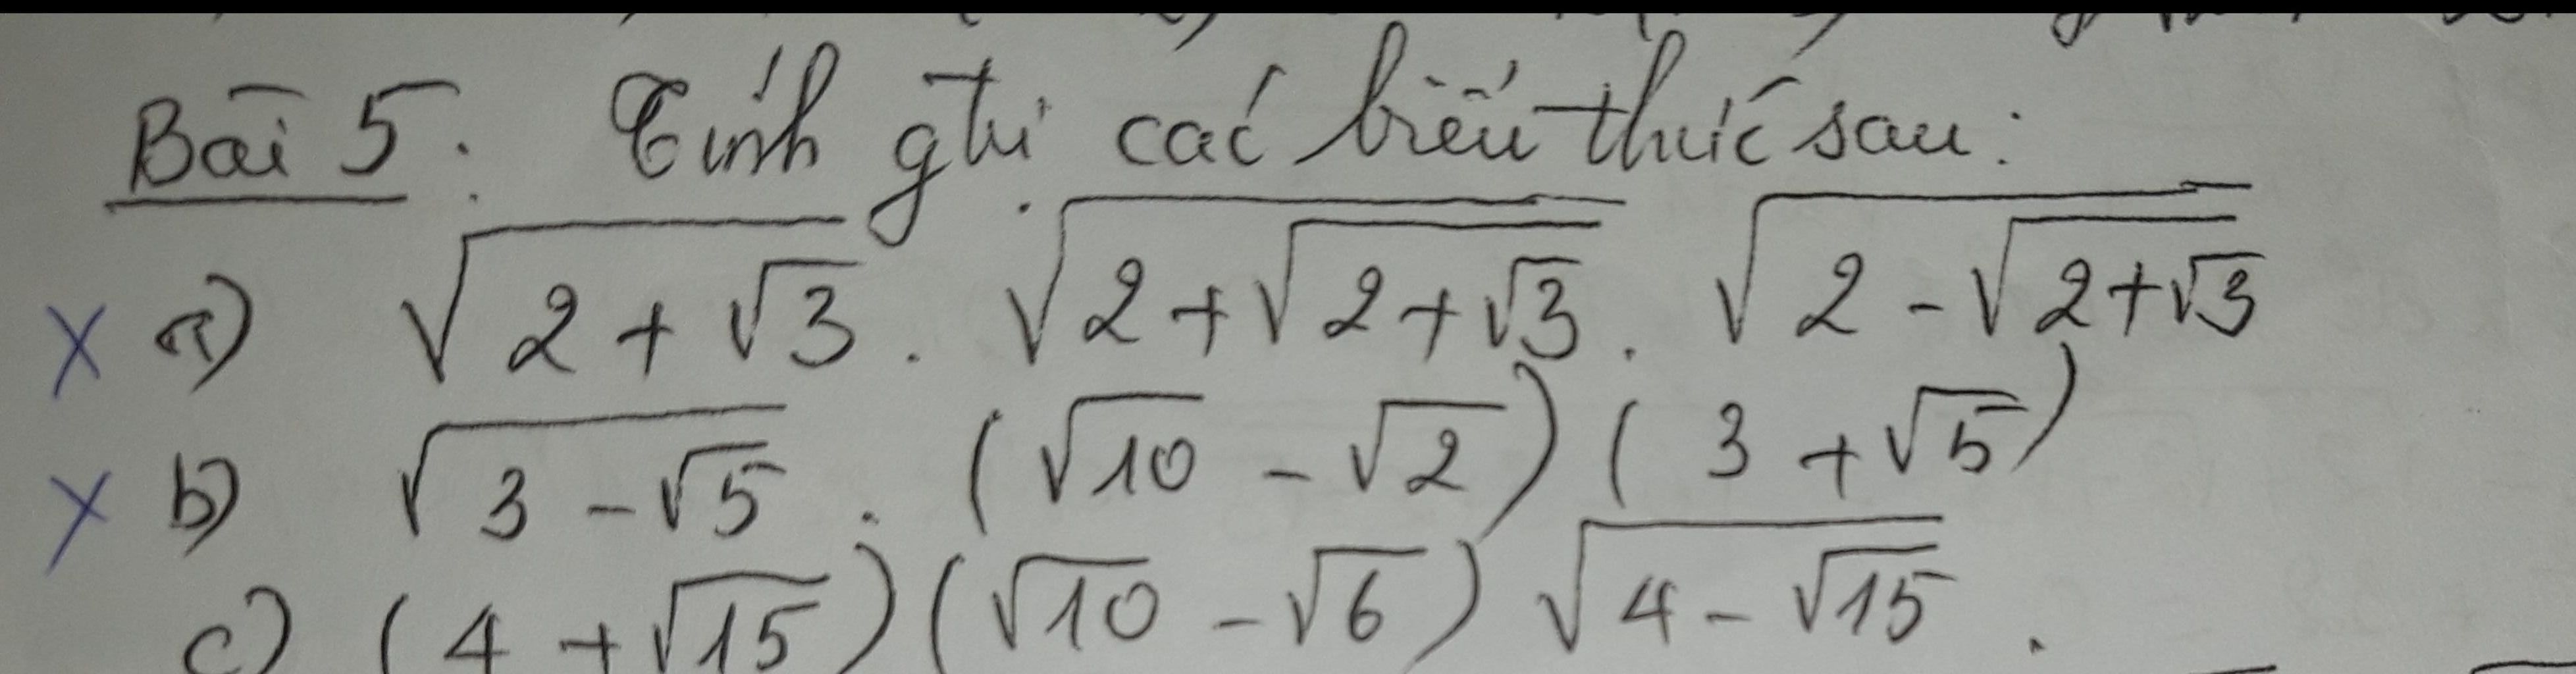 Bài 5: Tính gtrị các biểu thức sau:
x a) √(2 + √3) . √(2 + √(2 + √3)) . √(2 - √(2 + √3))
x b) √(3 - √5) . (√10 - √2) (3 + √5)
c) (4 + √15) (√10 - √6) √(4 - √15) .